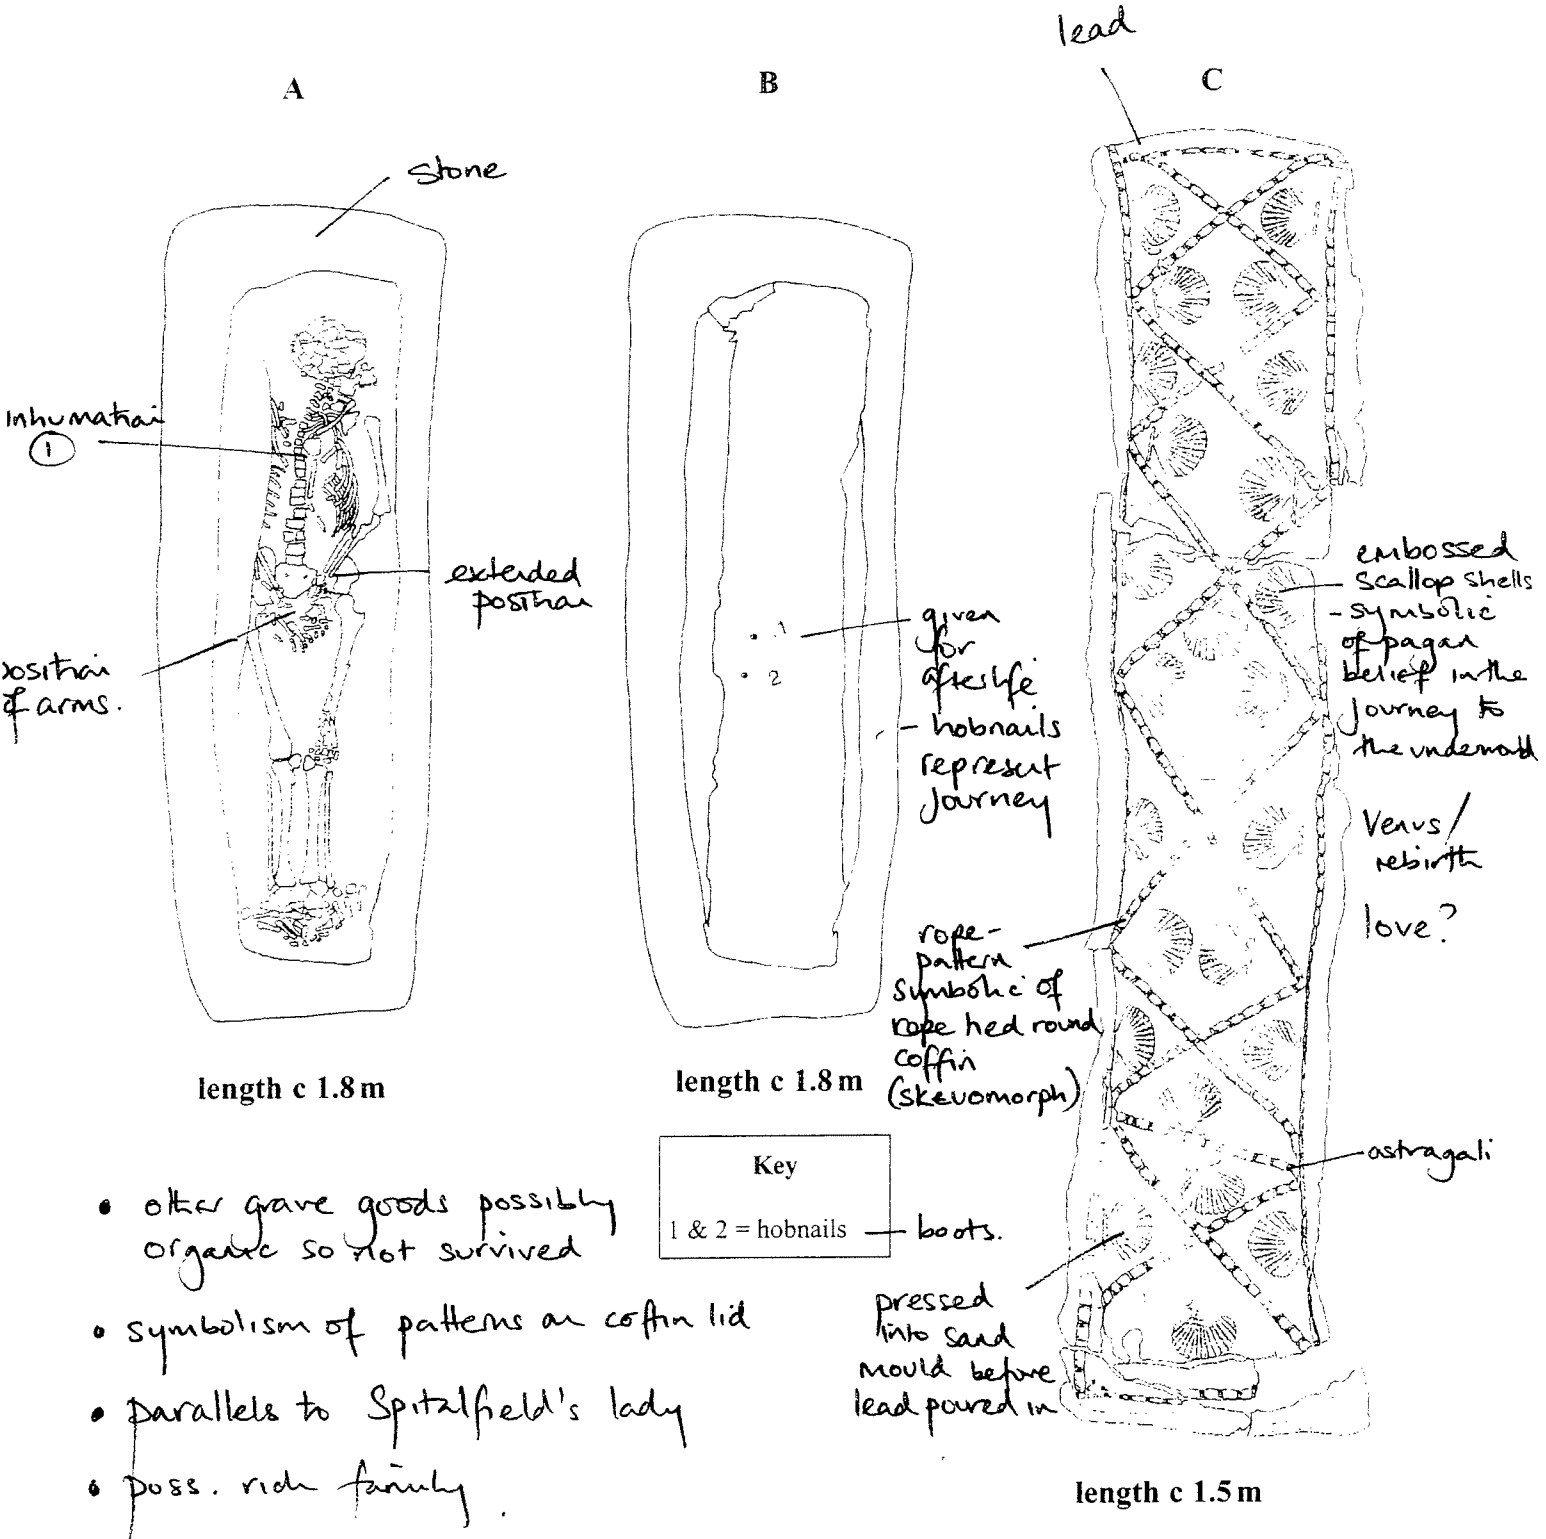 lead
A
B
C
stone
Inhumation
1
extended
position
position
of arms.
1
2
given
for
afterlife
- hobnails
represent
journey
embossed
scallop shells
- symbolic
of pagan
belief in the
journey to
the underworld
Venus/
rebirth
love?
rope-
pattern
symbolic of
rope tied round
coffin
(skeuomorph)
astragali
pressed
into sand
mould before
lead poured in
length c 1.8 m
length c 1.8 m
length c 1.5 m
Key
1 & 2 = hobnails
boots.
• other grave goods possibly
organic so not survived
• symbolism of patterns on coffin lid
• parallels to Spitalfield's lady
• poss. rich family.